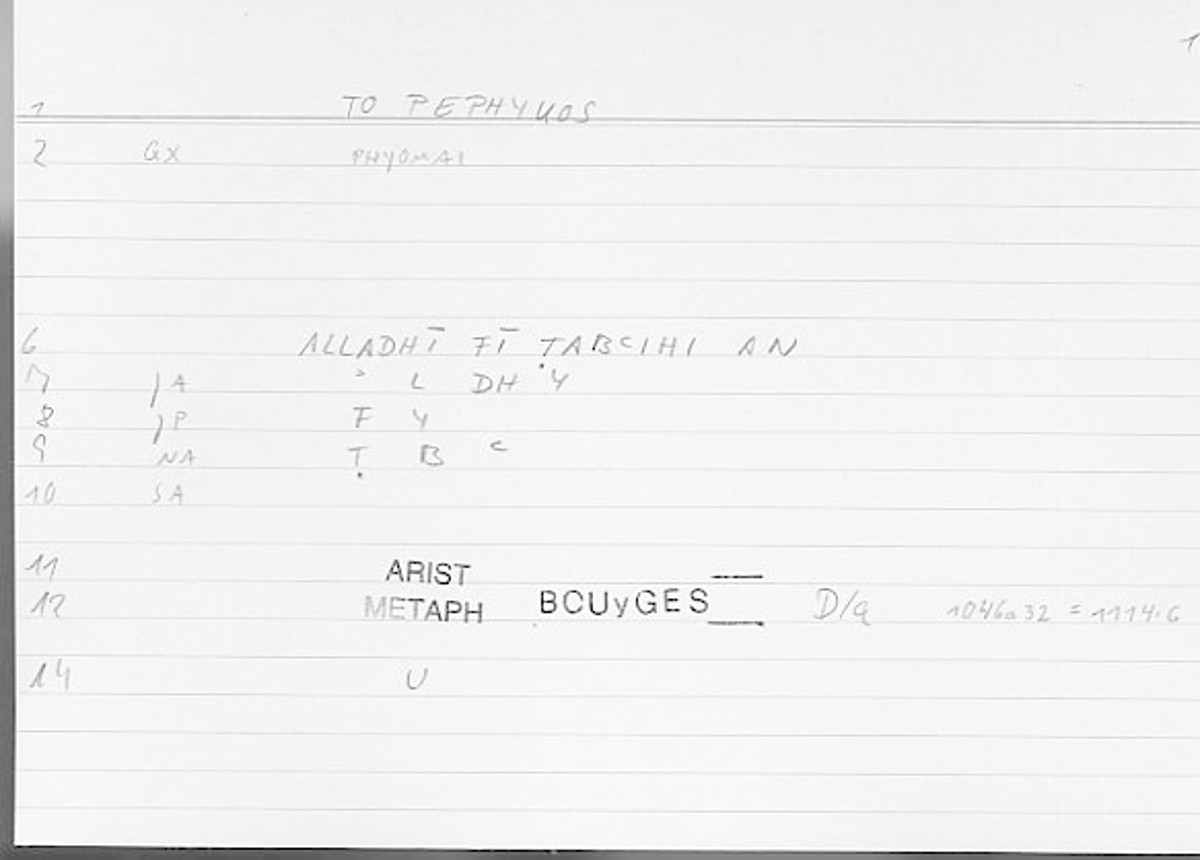 1
1 TO PEPHYKOS
2 GX PHYOMAI
6 ALLADHĪ FĪ ṬABCIHI AN
7 )A ʾ L DH Y
8 )P F Y
9 NA Ṭ B C
10 SA
11 ARIST
12 METAPH BOUyGES D/q 1046a32 = 1114.6
14 U